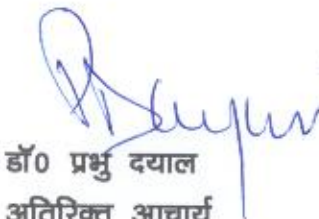 डॉ0 प्रभु दयाल
अतिरिक्त आचार्य